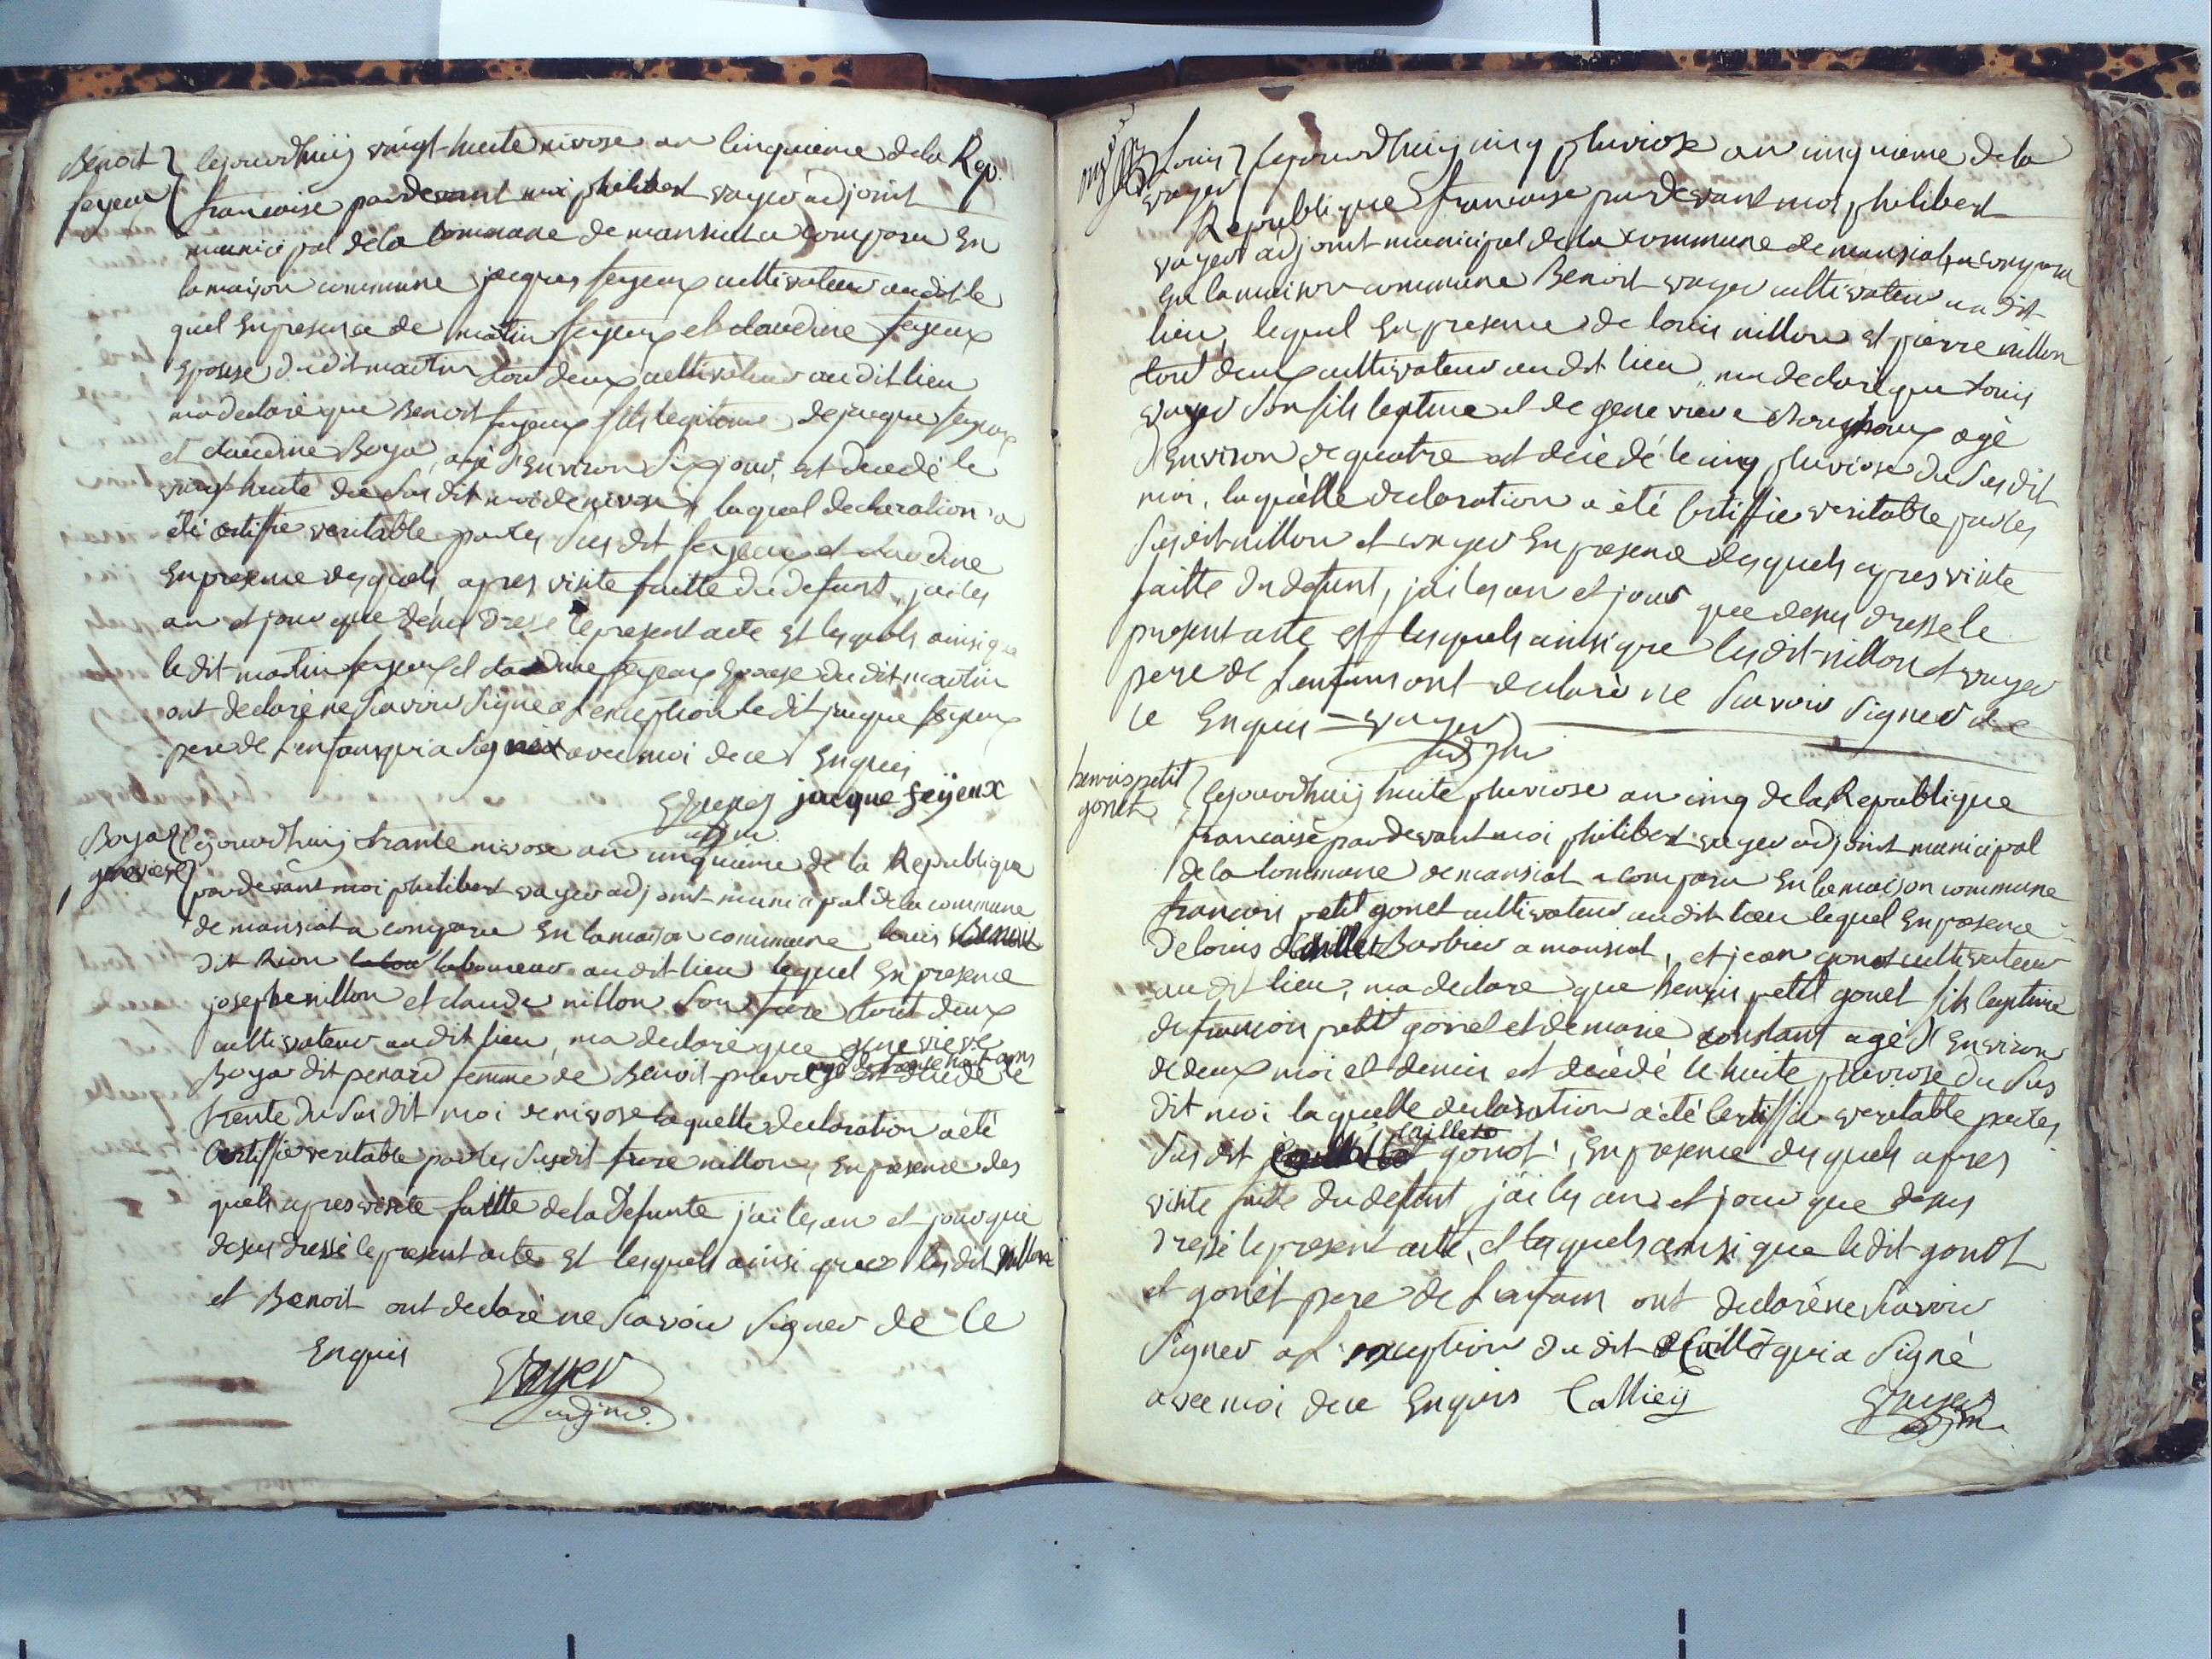 Benoit
feyeux
lejourdhuij vingt-huite nivose an cinquieme dela Rep.
francaise pardevant moi philibert vayer adjoint
municipal dela commune de mansiat a comparu En
la maison commune jacques feyeux cultivateur audit le
quel En presence de martin feyeux et claudine feyeux
Epouse dudit martin tou deux cultivateur audit lieu
ma declaré que Benoit feyeux fils legitime de jacque feyeux
et claudine Boya, agé d'Environ Six jour, est decedé le
vingt huite du Sus dit moi de nivose, laquel declaration a
été certiffie veritable par les Sus dit feyeux et claudine
En presence desquels, apres visite faitte du defunt, jai les
an et jour que desus dressé le present acte Et lesquels ainsi que
le dit martin feyeux et claudine feyeux Epouse du dit martin
ont declaré ne Scavoir Signé a l'exception le dit jacque feyeux
pere de l'enfans qui a Signé avec moi de ce Enquis
Vayer jacque feijeux
adjm.
Boya
genevieve
lejourdhuij trante nivose an cinquieme de la Republique
pardevant moi philibert vayer adjoint municipal dela commune
de mansiat a comparu En la maison commune louis Benoit
dit Rion laboureur audit lieu lequel En presence
josephe nillon et claude nillon Son frere tout deux
cultivateur audit lieu, ma declaré que genevieve
agé de trante huit ans
Boya dit penard femme de Benoit est decedé le
trente du Sus dit moi de nivose laquelle declaration a été
Certiffie veritable par les Susdit frere nillon, En presence des
quels apres visite faitte dela Defunte jai les an et jour que
desus dressé le present acte Et lesquels ainsi que les dit nillon
et Benoit ont declaré ne Scavoir Signer de Ce
Enquis
Vayer
adjm.
Louis
vayer
lejourdhuij cinq pluviose an cinquieme dela
Republique francaise pardevant moi philibert
vayer adjoint municipal dela commune de mansiat a comparu
En la maison commune Benoit vayer cultivateur au dit
lieu, lequel En presence de louis nillon Et pierre nillon
tout deux cultivateur audit lieu, ma declaré que Louis
vayer Son fils legitime et de genevieve agé
d'Environ de quatre est décédé le cinq pluviose du Sus dit
moi, laquelle declaration a été certiffie veritable par les
Susdit nillon et vayer En presence desquels apres visite
faitte du defunt, jai les an et jour que desus dressé le
present acte et lesquels ainsi que les dit nillon et vayer
pere de l'enfans ont declaré ne Scavoir Signer de
ce Enquis = vayer
adjm
henris petit
gonet
lejourdhuij huite pluviose an cinq dela Republique
francaise pardevant moi philibert vayer adjoint municipal
dela commune de mansiat a comparu En la maison commune
francois petit gonet cultivateur audit lieu lequel En presence
De louis Caillet Barbier a mansiat, et jean gonot cultivateur
au dit lieu, ma declare que henris petit gonet fils legitime
de francois petit gonet et de marie constant agé d'Environ
de deux moi et demis est décédé le huite pluviose du Sus
dit moi laquelle declaration a été certiffie veritable par les
Caillet
Sus dit et gonot, En presence desquels apres
visite faite du defunt, jai les an et jour que desus
dressé le present acte, et lesquels ainsi que le dit gonot
et gonet pere de l'enfans ont declaré ne Scavoir
Signer a l'exception du dit Caillet qui a Signé
avec moi de ce Enquis Calliey
Vayer
adjm.